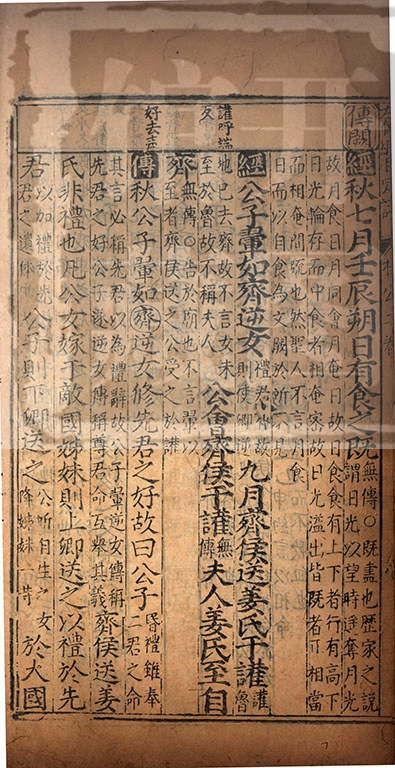 傳闕
經秋七月壬辰朔日有食之既
無傳○既盡也歷家之說
謂日光以望時遥奪月光
故月食日月同會月奄日故日食食有上下者行有高下
日光輪存而中食者相奄密故日光溢出皆既者正相當
而相奄間踈也然聖人不言月食
日而以自食為文闕於所不見
經公子翬如齊逆女
禮君有故
則使卿逆
九月齊侯送姜氏于讙
讙魯
讙呼端
反
地已去齊故不言女未
至於魯故不稱夫人
公會齊侯于讙
無傳
夫人姜氏至自
齊
無傳○告於廟也不言翬以
至者齊侯送之公受之於讙
好去声
傳秋公子翬如齊逆女修先君之好故曰公子
昏禮雖奉
二君之命
其言必稱先君以為禮辭故公子翬逆女傳稱
先君之好公子遂逆女傳稱尊君命互舉其義
齊侯送姜
氏非禮也凡公女嫁于敵國姊妹則上卿送之以禮於先
君
以加禮於先
君君之遺體
公子則下卿送之
公所自生之女
降姊妹一等
於大國